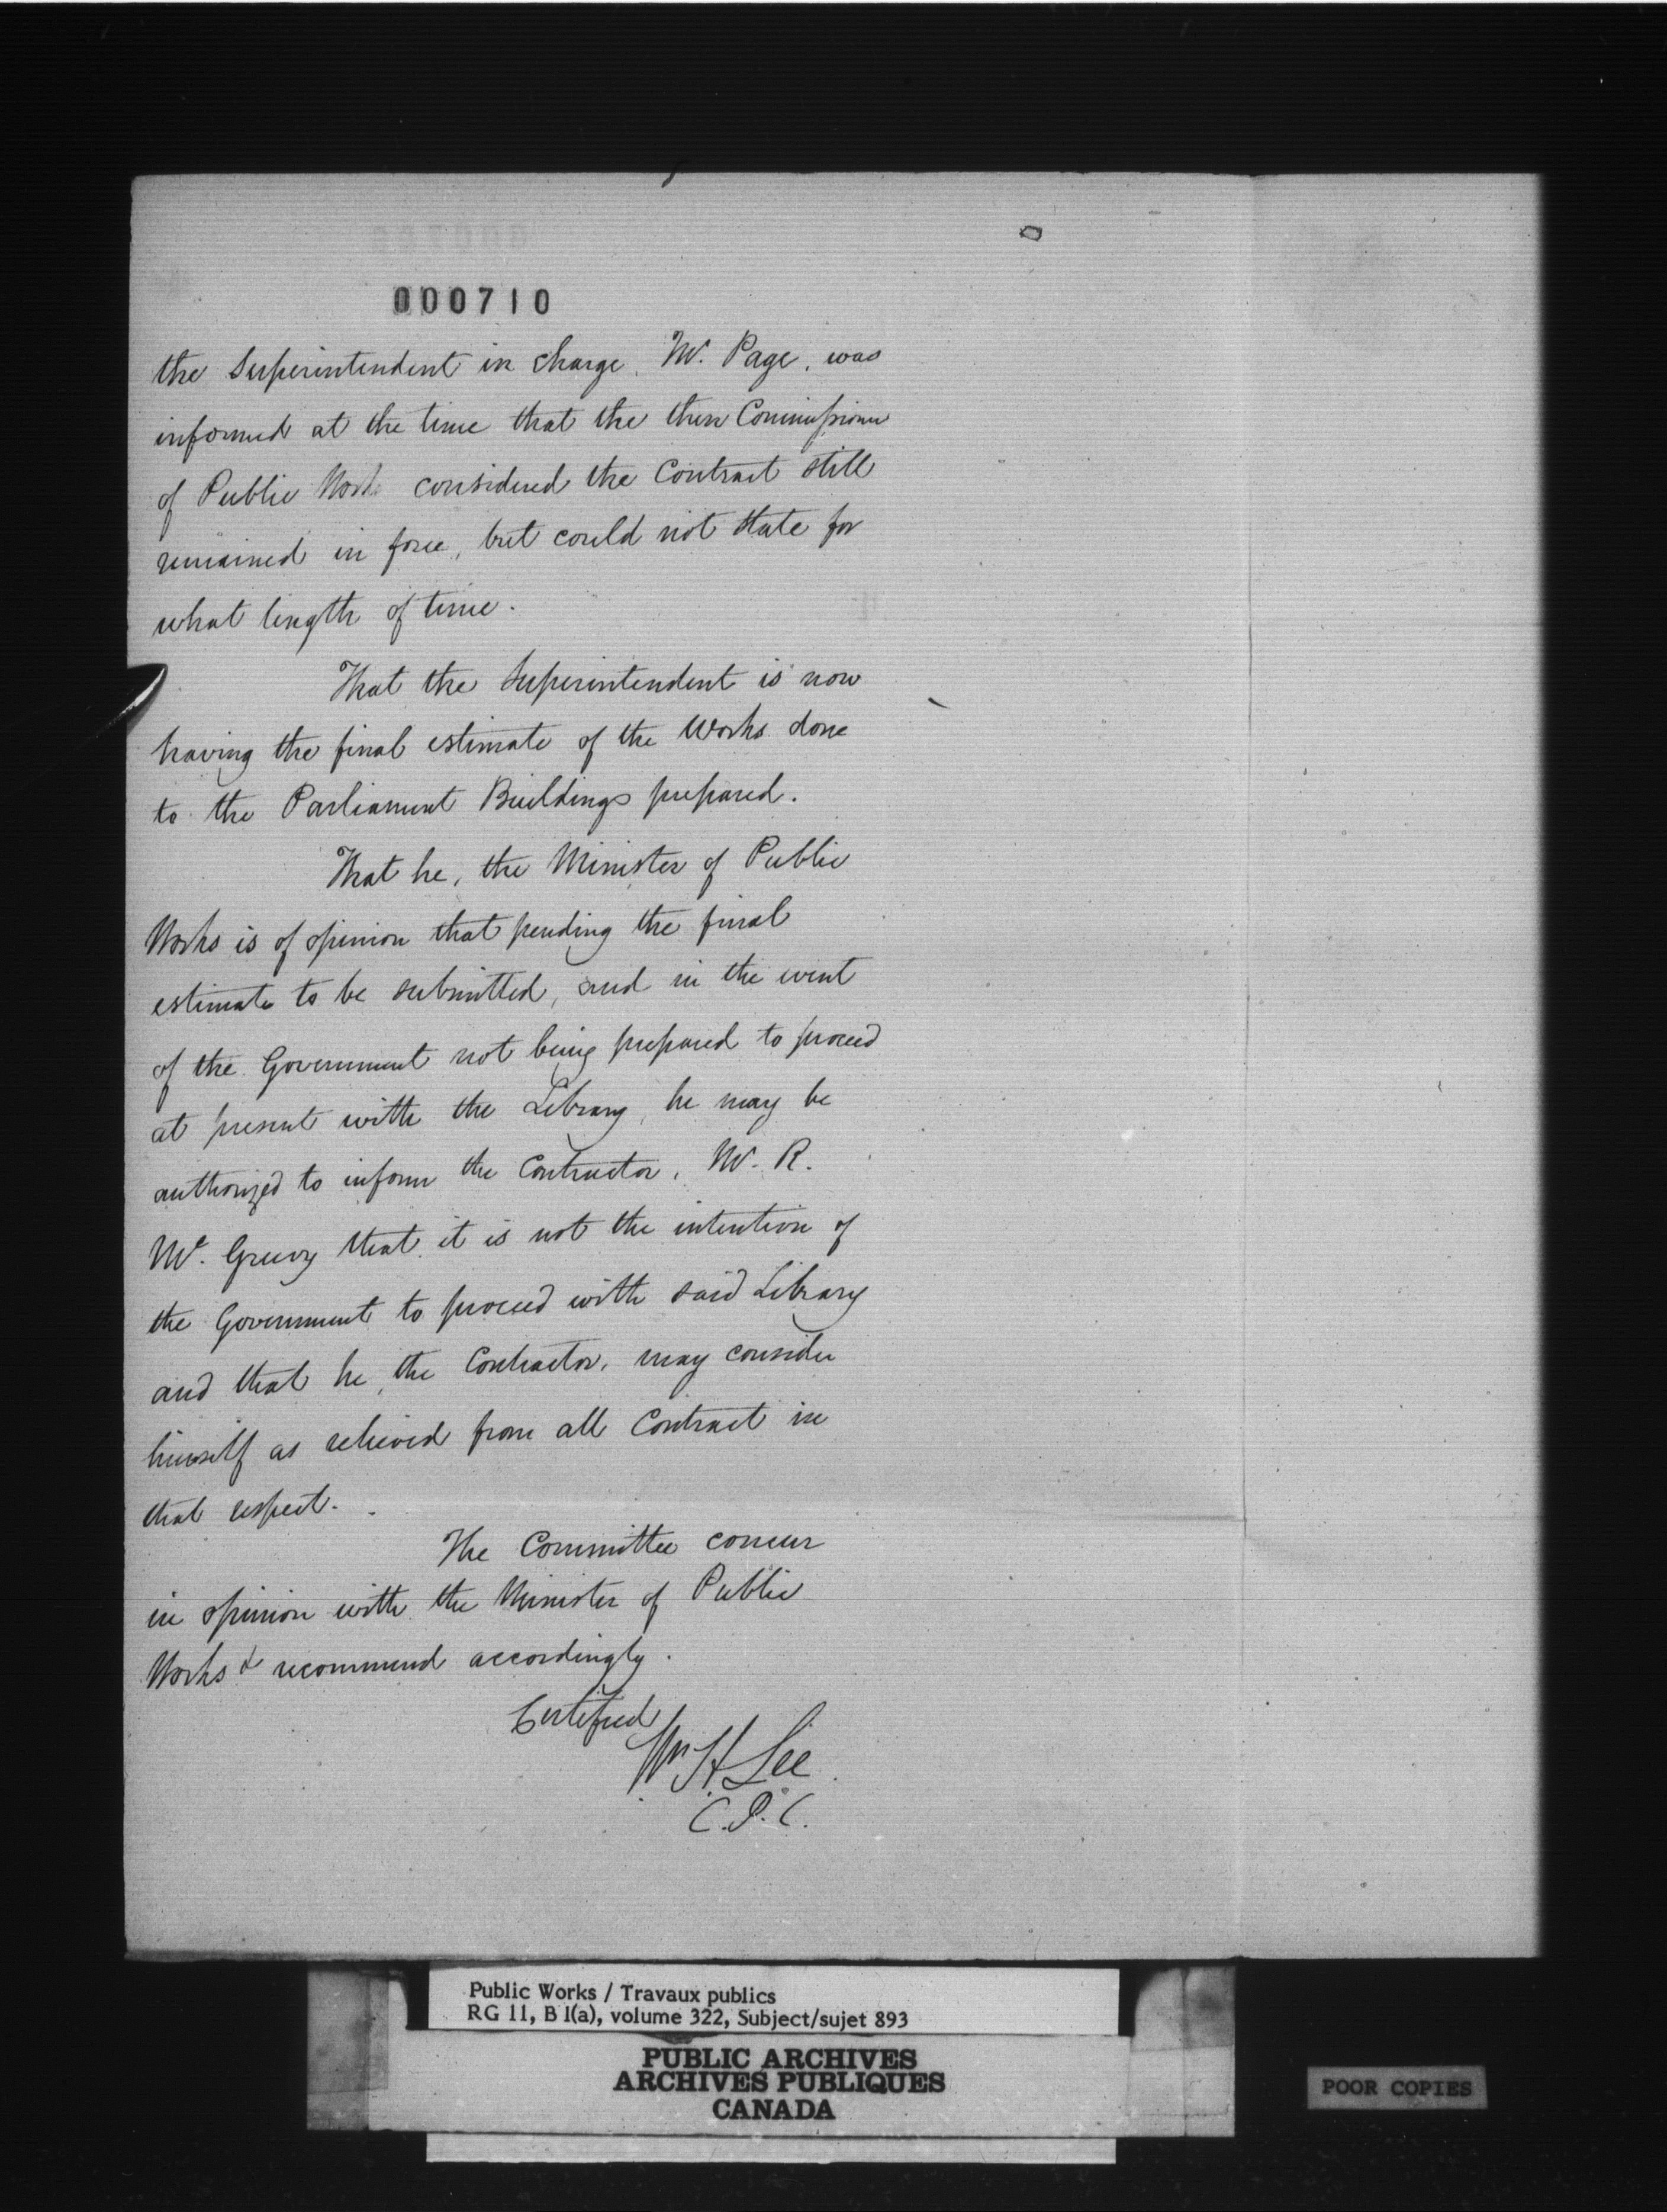 000710
the Superintendent in charge, Mr. Page, was
informed at the time that the then Commissioner
of Public Works considered the Contract still
remained in force, but could not state for
what length of time.
That the Superintendent is now
having the final estimate of the Works done
to the Parliament Buildings prepared.
That he, the Minister of Public
Works is of opinion that pending the final
estimate to be submitted, and in the event
of the Government not being prepared to proceed
at present with the Library, he may be
authorized to inform the Contractor, Mr. R.
Mc. Greevy that it is not the intention of
the Government to proceed with said Library
and that he, the Contractor, may consider
himself as relieved from all Contract in
that respect.
The Committee concur
in opinion with the Minister of Public
Works & recommend accordingly.
Certified
Wm H Lee
C.P.C.
Public Works / Travaux publics
RG 11, B 1(a), volume 322, Subject/sujet 893
PUBLIC ARCHIVES
ARCHIVES PUBLIQUES
CANADA
POOR COPIES